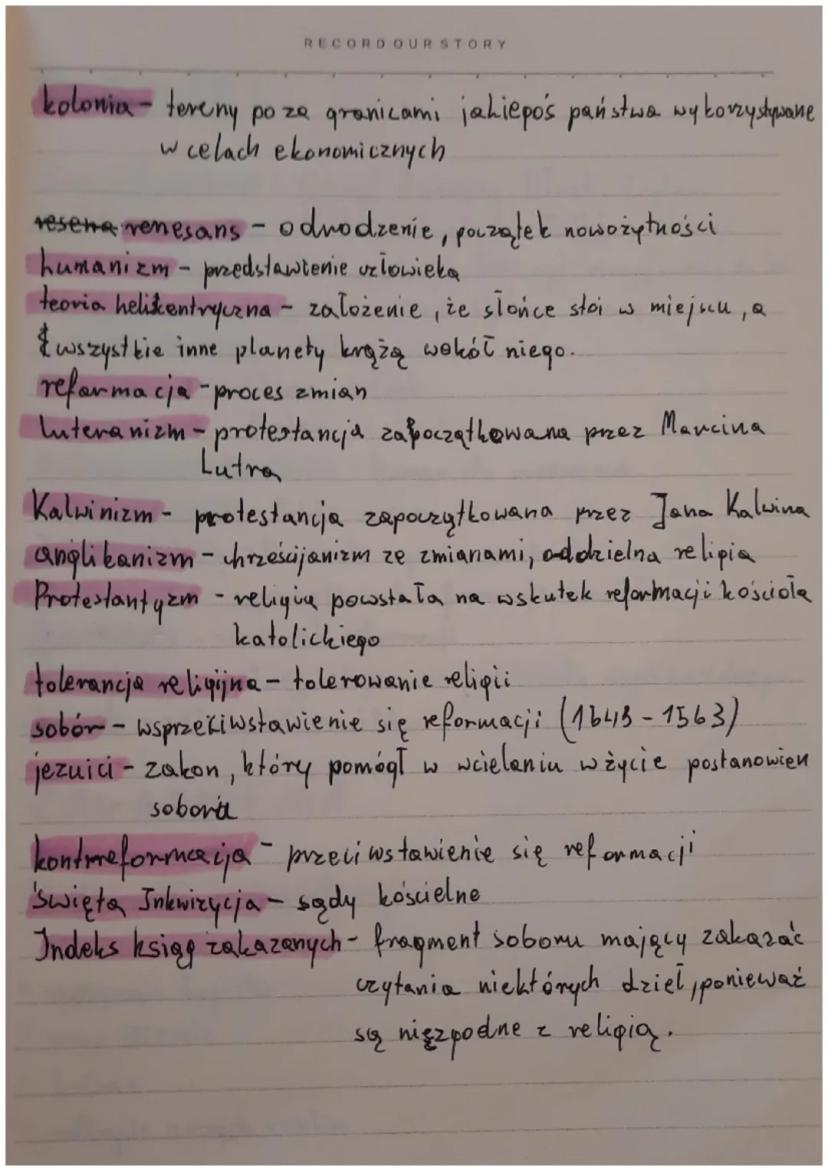 RECORD OUR STORY
kolonia - tereny poza granicami jakiegoś państwa wykorzystywane
w celach ekonomicznych
renesans - odrodzenie, początek nowożytności
humanizm - przedstawienie człowieka
teoria heliocentryczna - założenie, że słońce stoi w miejscu, a
wszystkie inne planety krążą wokół niego.
reformacja - proces zmian
luteranizm - protestancja zapoczątkowana przez Marcina
Lutra
Kalwinizm - protestancja zapoczątkowana przez Jana Kalwina
anglikanizm - chrześcijanizm ze zmianami, oddzielna religia
Protestantyzm - religia powstała na wskutek reformacji kościoła
katolickiego
tolerancja religijna - tolerowanie religii
sobór - wsprzeciwstawienie się reformacji (1545 - 1563)
jezuici - zakon, który pomógł w wcielaniu w życie postanowień
sobora
kontrreformacja - przeciwstawienie się reformacji
Święta Inkwizycja - sądy kościelne
Indeks ksiąg zakazanych - fragment soboru mający zakazać
czytania niektórych dzieł, ponieważ
są niezgodne z religią.